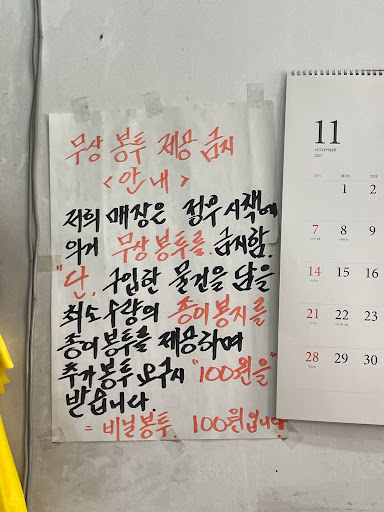 무상 봉투 제공 금지
<안내>
저희 매장은 정부시책에
의거 무상봉투를 금지함.
"단, 구입한 물건을 담을
최소수량의 종이봉지를
종이봉투를 제공하며
추가봉투 요구시 "100원을"
받습니다
= 비닐봉투 100원입니다
11
NOVEMBER
2021
SUN MON TUE
1 2
7 8 9
14 15 16
21 22 23
28 29 30